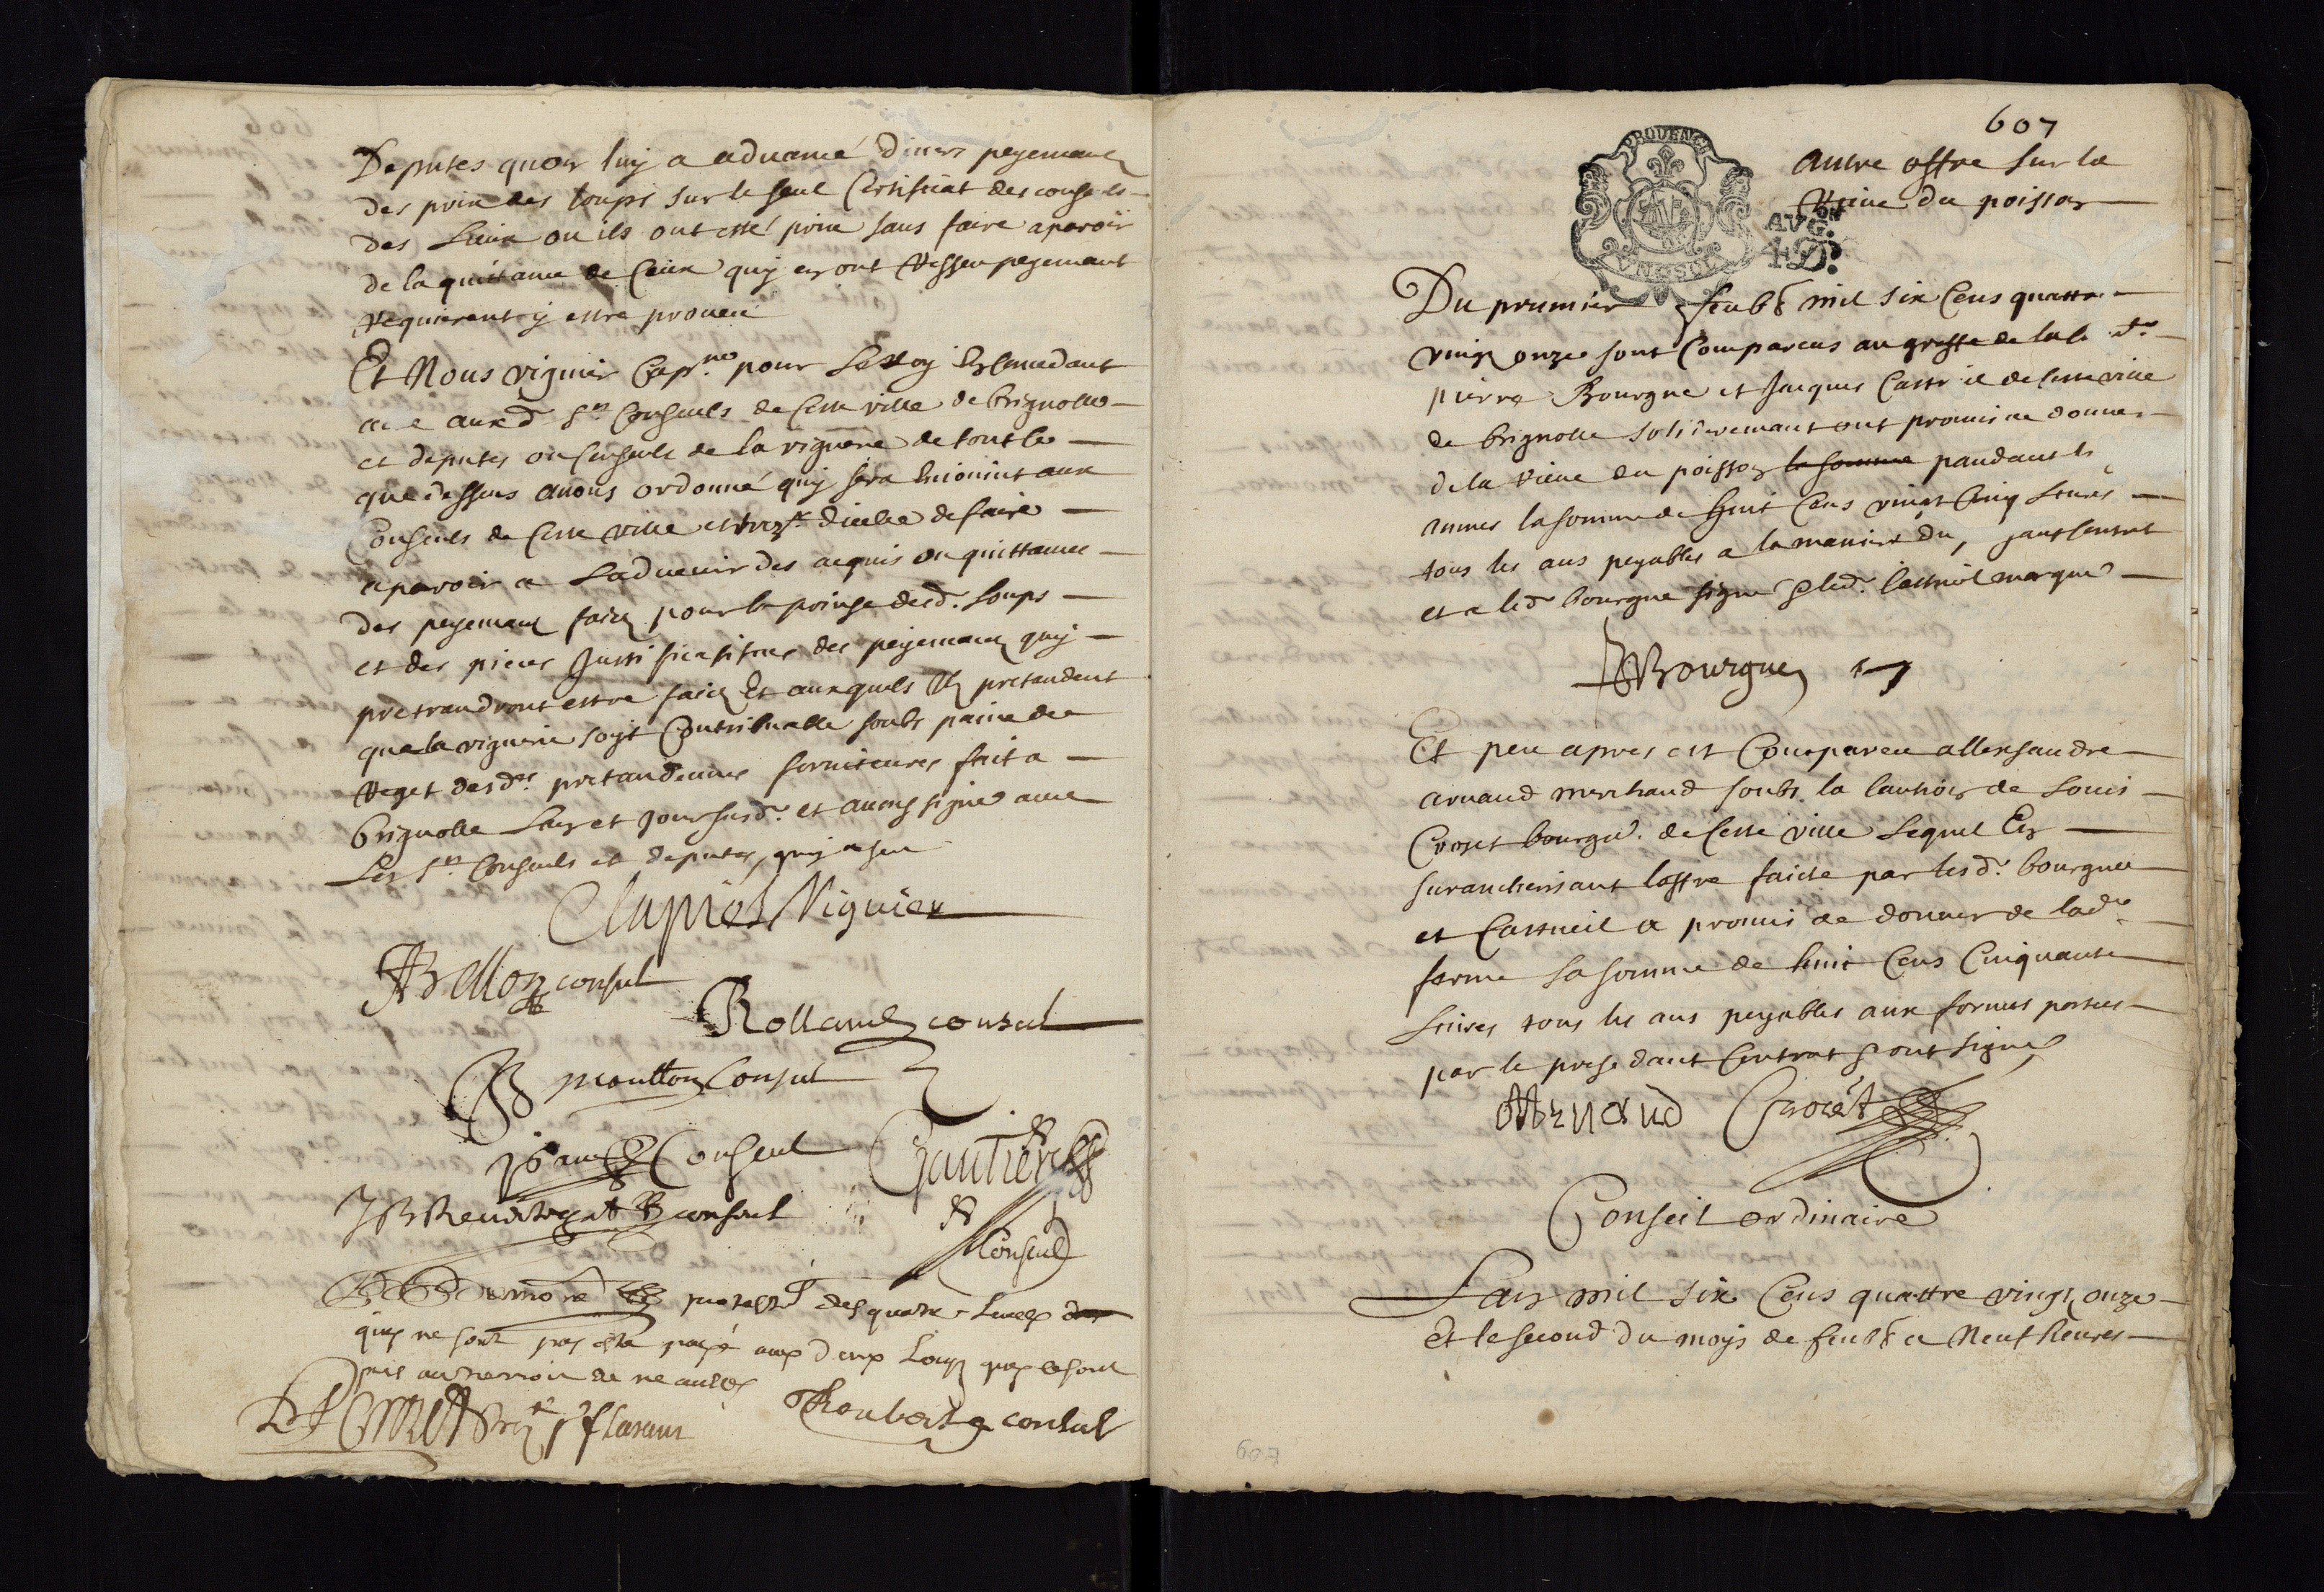 Deputes quon luy a advancé divers peyemans
des prix des loups sur le seul Certificat des consuls
des Lieux ou ils ont esté prins sans faire aparoir
de la quittance de Ceux quy en ont Resseu peyemant
Requierent y estre proveu
Et Nous viguier Capne pour Le Roy En concedant
acte aux d srs Consuls de Ceste ville de brignolle
et deputes ou Consuls de la viguerie de tout ce
que dessus avons ordonné quy sera Enioinint aux
Consuls de Ceste ville et dicelle de faire
aparoir a Ladvenir des acquis ou quittances
des peyemans faicz pour la prinse desd. Loups
et des pieces Justificatives des peyemans quy
pretandront estre faicz Et auxquels Ilz pretandent
que la viguerie soyt Contribuable soubs paine de
Reget desd. pretandeues fornitures fait a
brignolle Lan et Jour susd. et avons signé avec
Les srs Consuls et deputes, quy a seu
Clapiers Viguier
ABellon consul
Rolland consul
B moutton Consul
Consul
Gautier
consul
Consul
protesté des quatre
quy ne sont pas este payé aux deux Loups quy se sont
pris au terroir de neaules
flassans
Roubert consul
607
Autre offre sur la
Reive du poisson
PROVENCE
VN SOL
AVGON
4D.
Du prumier feub8 mil six Cens quattre
vingt onze sont Compareus au greffe de la
pierre Bourgne et Jacques Castueil de Ceste ville
de brignolle solideremant ont promis de donner
de la Reive du poisson la somme pandant les
annees la somme de huit Cens vingt Cinq Livres
tous les ans peyables a la maniere du, Jant Contrat
et a led bourgne signe & led. Castueil marqué
Bourgne
Et peu apres est Compareu allexsandre
arnaud merchand soubs la Caution de Louis
Croset bourgs. de Ceste ville Lequel En
surancherisant loffre faicte par lesd. bourgne
et Castueil a promis de donner de lade
ferme La somme de huit Cens Cinquante
Livres tous les ans peyables aux formes portees
par le presedant Contrat & ont signe
Arnaud Crozet
Conseil ordinaire
Lan mil six Cens quattre vingt onze
et le second du moys de feub8 a Neuf heures
607